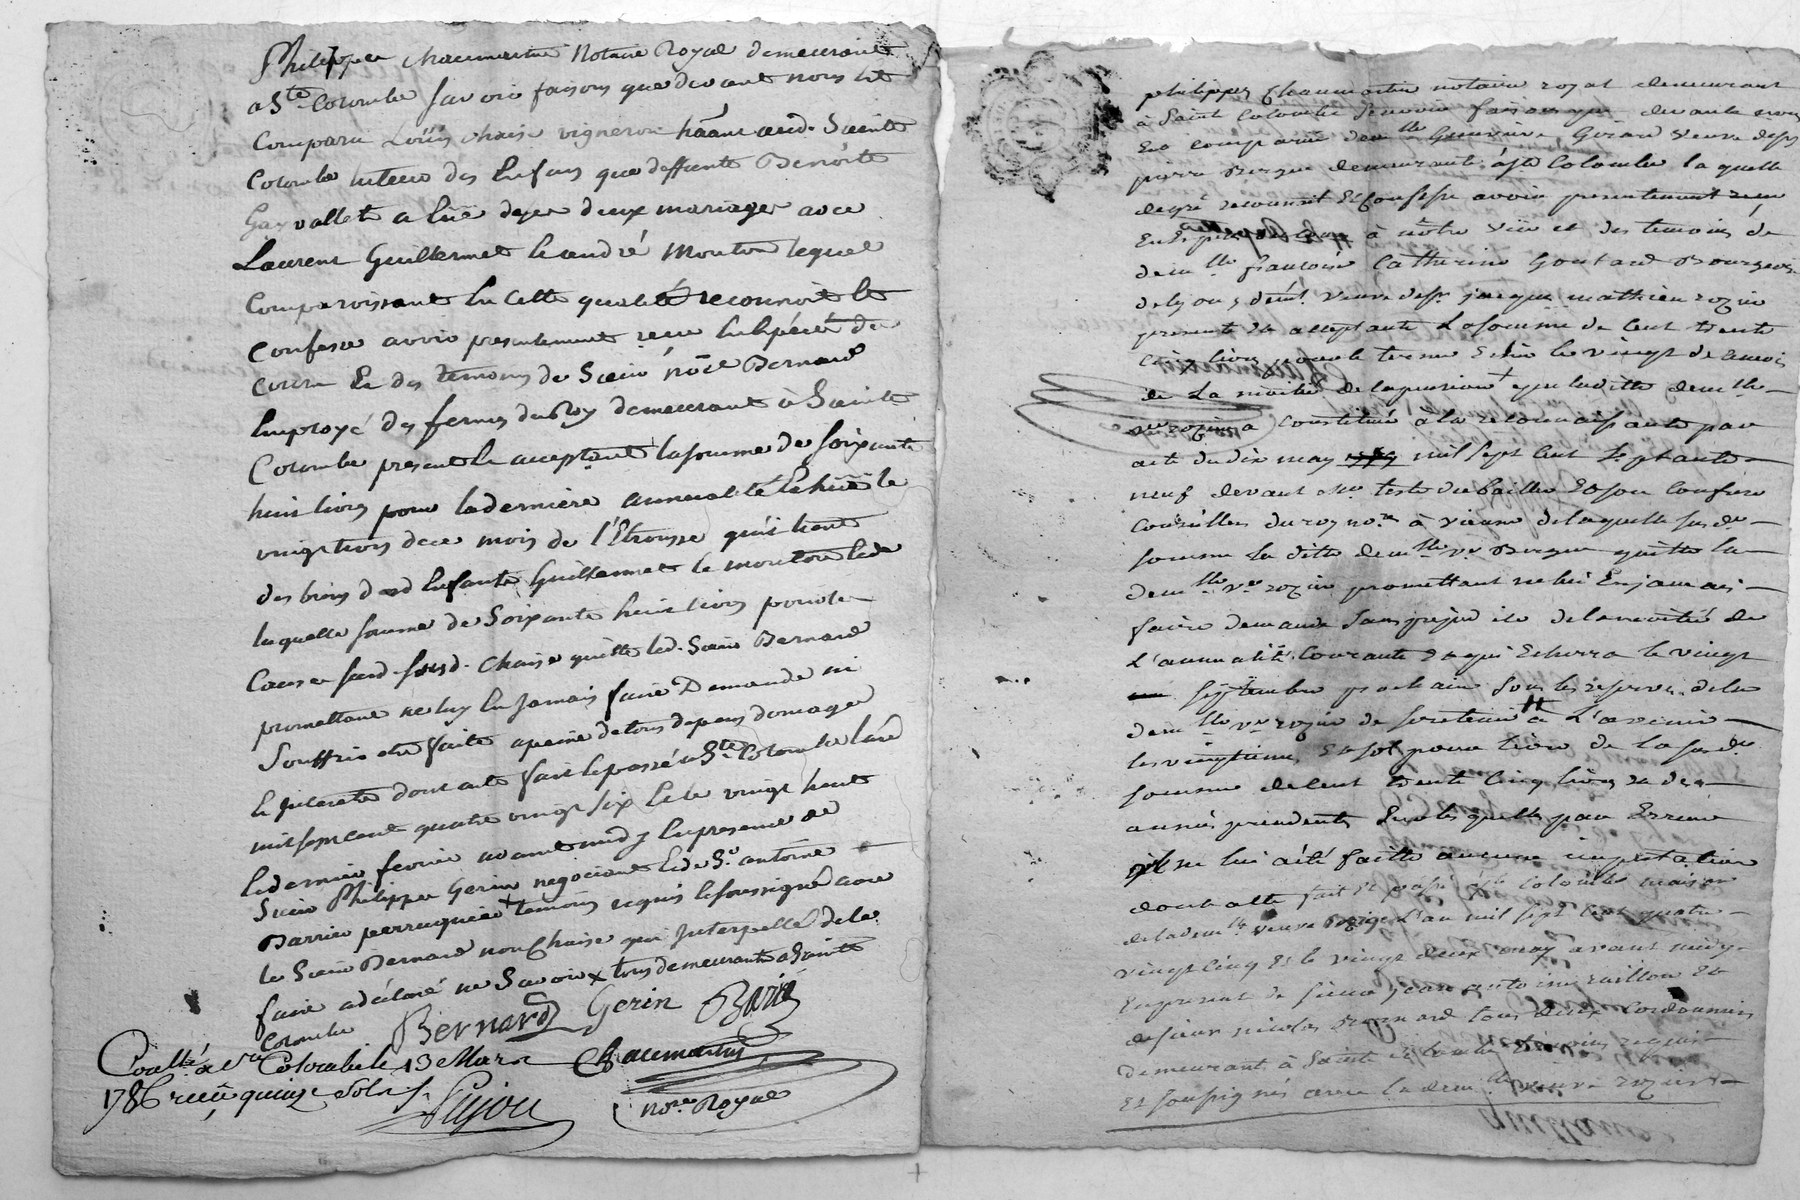 Philippe Chaumartin Notaire Royal demeurant
a Ste Colombe savoir faisons que devant nous est
comparu Loüis chaise vigneron hãant aud. Sainte
Colombe tuteur des Enfans que deffunte Benoite
Gayvallet a Eüe de ses deux mariages avec
Laurent Guillermet et andré Mouton lequel
comparoissant En cette qualité reconnoit et
confesse avoir presentement reçu En Espéces de
cours Et des temoins de Sieur Bernard
Employé des fermes du Roy demeurant à Sainte
Colombe present et acceptant la somme de soixante
huit livres pour la derniere annualité Echüe le
vingt trois de ce mois de l'Etrousse qu'il tient
des biens desd Enfants Guillermet et mouton de
laquelle somme de Soixante huit livres pour de
Cause led. Chaise quitte led. Sieur Bernard
promettant ne luy En Jamais faire Demande ni
Souffrir etre faite a peine de tous depens domage
Et Interets dont acte fait et passé a Ste Colombe L'an
mil sept cent quatre vingt six Et le vingt huit
Et dernier fevrier avant midy En presence de
Sieur Philippe Gerin negociant Et de Sr antoine
Barrier perruquier + temoins requis et soussignés avec
le Sieur Bernard non Chaise qui Interpellé de le
faire a déclaré ne Savoir x tous demeurants a Sainte
Colombe
Bernard Gerin Barié
Conllé a Ste Colombe le 13 Mars Chaumartin
1786 reçu quinze Sols
Pujou nore Royal
philippes Chaumartin notaire royal demeurant
à Saint Colombe Savoir faisons que devante nous
Est comparüe demlle Genevieve Girard veuve de sr
pierre Berger demeurante à ste Colombe la quelle
de gré reconnoit Et Confesse avoir presentement reçu
En Espèces de cours à nôtre vüe et des temoins de
demlle françoise Catherine Goutard Bourgeoise
de Lyon veuve de sr jacques mathieu rozier
presente Et acceptante La somme de Cent trente
cinq livres pour le terme Echû le vingt de ce mois
de La moitié de la pension + que laditte demlle
vve rozier a constitué à la reconnaissante par
acte du dix may mil sept cent Septante
neuf devant Me teste du bailler Et son Confrere
Conseillers du roy nore à vienne de laquelle susde
somme La ditte demlle vve Berger quitte la
demlle vve rozier promettant ne lui En jamais
faire demande Sans préjudice de la moitié de
L'annualité Courante Et qui Echerra le vingt
Septembre prochain Sous les reserves de la
demlle vve rozier de Soutenir à L'avenir
les vingtiemes Et sol pour livre de la susde
somme de Cent trente Cinq livres Et des
années precedentes Sur lesquelles par Erreur
il ne lui a été faitte aucune imputation
dont acte fait Et passé à Ste Colombe maison
de lademlle veuve L'an mil sept cent quatre
vingt cinq Et le vingt deux may avant midy
En present de sieur jean antoine raillon Et
de sieur nicolas Bernard tous deux Cordonniers
demeurant à Sainte Colombe temoins requis
Et soussignés avec la demlle veuve rozier